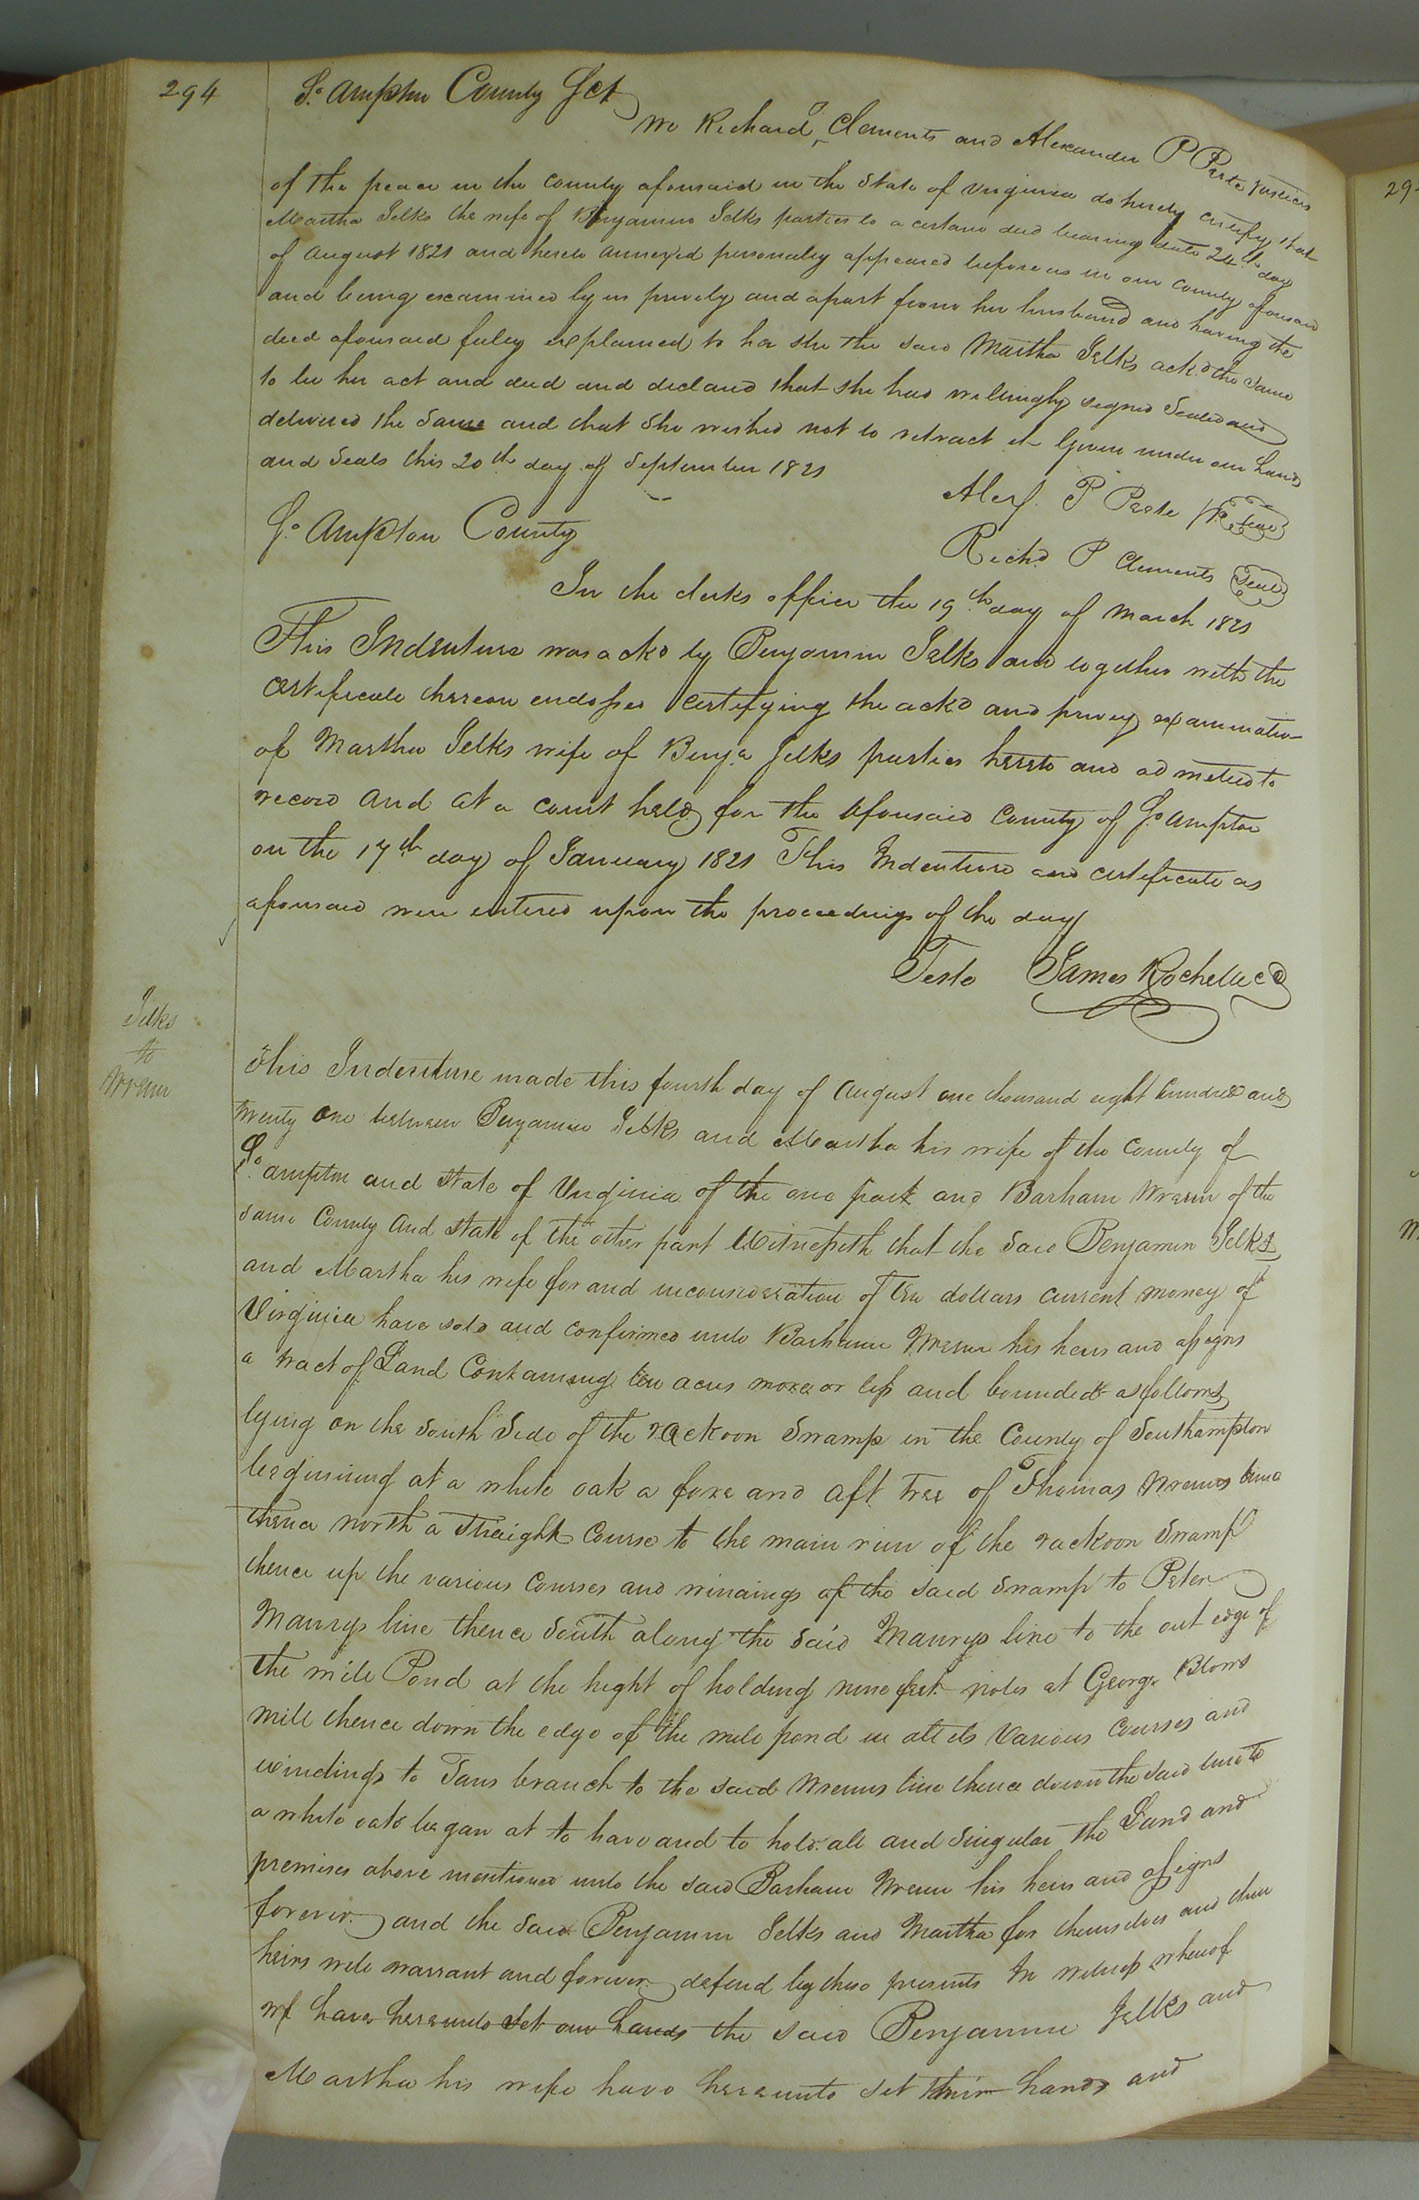 294
So. Ampton County Sct
We Richard P Clements and Alexander P Peete Justices
of the peace in the County aforesaid in the State of Virginia do hereby certify that
Martha Jelks the wife of Benjamin Jelks parties to a certain deed bearing date 24th day
of August 1821 and hereto annexed personally appeared before us in our County aforesaid
and being examined by us privily and apart from her husband and having the
deed aforesaid fuley explained to her she the said Martha Jelks ackd the same
to be her act and deed and declared that she had willingly signed Sealed and
delivered the Same and that She wished not to retract it Given under our hands
and Seals this 20th day of September 1821
Alexr. P Peete Seal
Richd P Clements Seal
So. Ampton County
In the clerks office the 19th day of March 1821
This Indenture was ackd by Benjamin Jelks and together with the
Certificate thereon endossed Certifying the ackd and privey examination
of Martha Jelks wife of Benja Jelks parties hereto and admitted to
record and at a court held for the Aforesaid County of So. ampton
on the 17th day of January 1821 This Indenture and certificate as
aforesaid were entered upon the proceedings of the day
Teste James Rochelle C
Jelks
to
Wrenn
This Indenture made this fourth day of August one thousand eight hundred and
twenty one between Benjamin Jelks and Martha his wife of the County of
So. ampton and State of Virginia of the one part and Barham Wrenn of the
same County and State of the other part Witnesseth that the Said Benjamin Jelks
and Martha his wife for and inconsideration of Ten dollars current money of
Virginia have sold and confirmed unto Barham Wrenn his heirs and assigns
a tract of Land Containing ten acres more or less and bounded as follows
lying on the South Side of the rackoon Swamp in the County of Southampton
beginning at a white oak a fore and aft tree of Thomas Wrenns line
thence north a straight Course to the main run of the rackoon Swamp
thence up the various Courses and windings of the said Swamp to Peter
Maurys line thence South along the said Maurys line to the out edge of
the mill Pond at the hight of holding nine feet poles at George Blows
mill thence down the edge of the mill pond in all its Various Courses and
windings to Tans branch to the said Wrenns line thence down the said line to
a white oak began at to have and to hold all and Singular the Land and
premises above mentioned unto the said Barham Wrenn his heirs and assigns
forever and the Said Benjamin Jelks and Martha for themselves and their
heirs will warrant and forever defend by these presents In witness whereof
we have hereunto Set our hands the said Benjamin Jelks and
Martha his wife have hereunto set their hands and